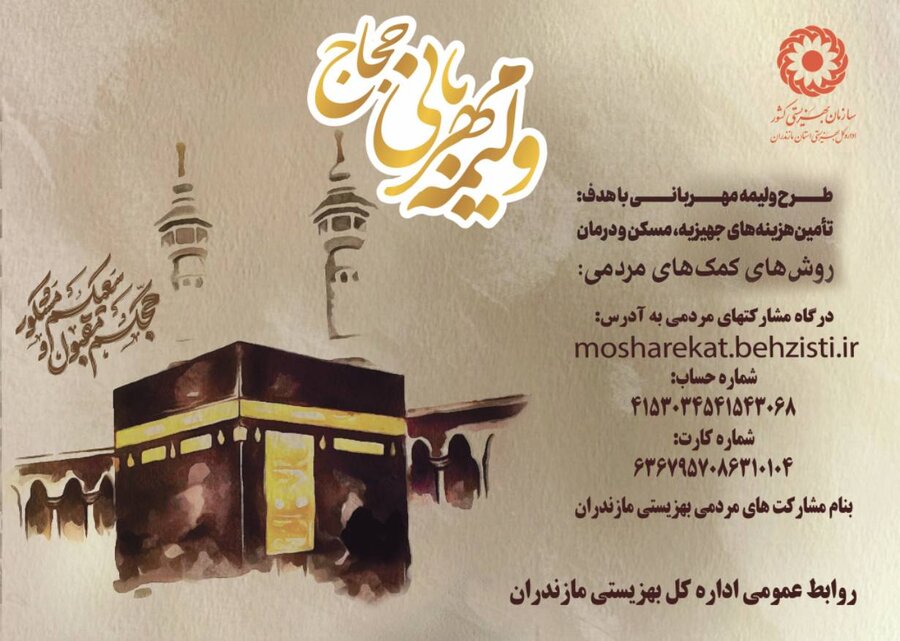 ولیمه مهربانی حجاج
سازمان بهزیستی کشور
اداره کل بهزیستی استان مازندران
طرح ولیمه مهربانی با هدف:
تأمین هزینه‌های جهیزیه، مسکن و درمان
روش های کمک های مردمی:
حجکم مقبول و
سعیکم مشکور
درگاه مشارکتهای مردمی به آدرس:
mosharekat.behzisti.ir
شماره حساب:
۴۱۵۳۰۳۴۵۴۱۵۴۳۰۶۸
شماره کارت:
۶۳۶۷۹۵۷۰۸۶۳۱۰۱۰۴
بنام مشارکت های مردمی بهزیستی مازندران
روابط عمومی اداره کل بهزیستی مازندران